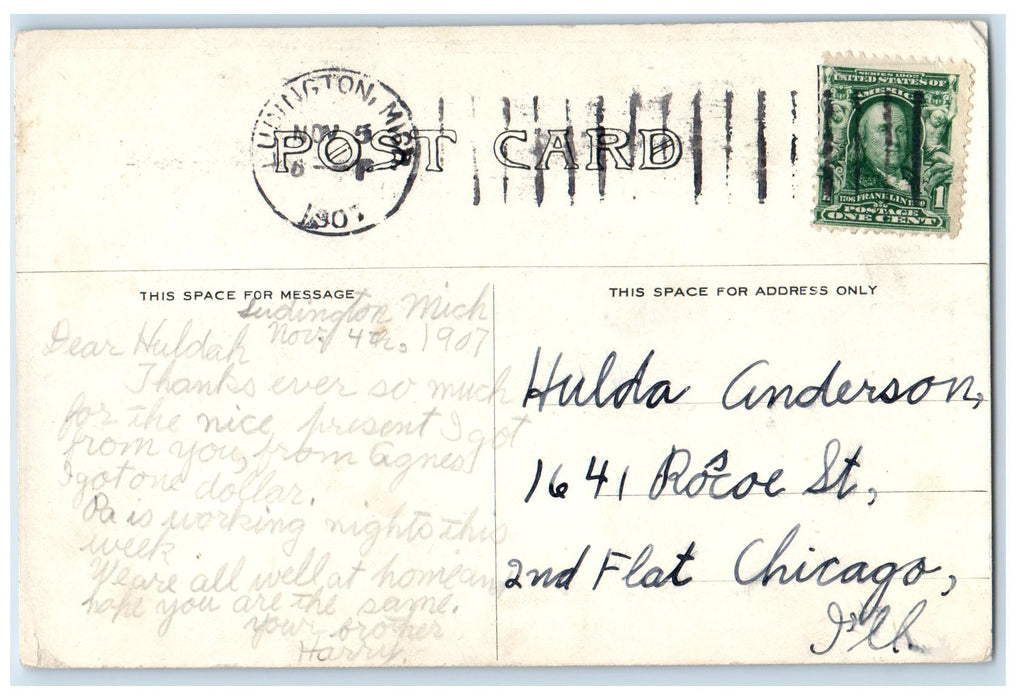 LUDINGTON, MICH
NOV 5
6 — P
1907
POST CARD
SERIES 1902
UNITED STATES OF
AMERICA
1706 FRANKLIN 1790
POSTAGE
ONE CENT
1
THIS SPACE FOR MESSAGE
Ludington Mich
Nov. 4th, 1907
Dear Huldah
Thanks ever so much
for the nice present I got
from you, from Agnes
I got one dollar.
Pa is working nights this
week
We are all well at home and
hope you are the same.
your brother
Harry.
THIS SPACE FOR ADDRESS ONLY
Hulda Anderson,
1641 Roscoe St,
2nd Flat Chicago,
Ill.